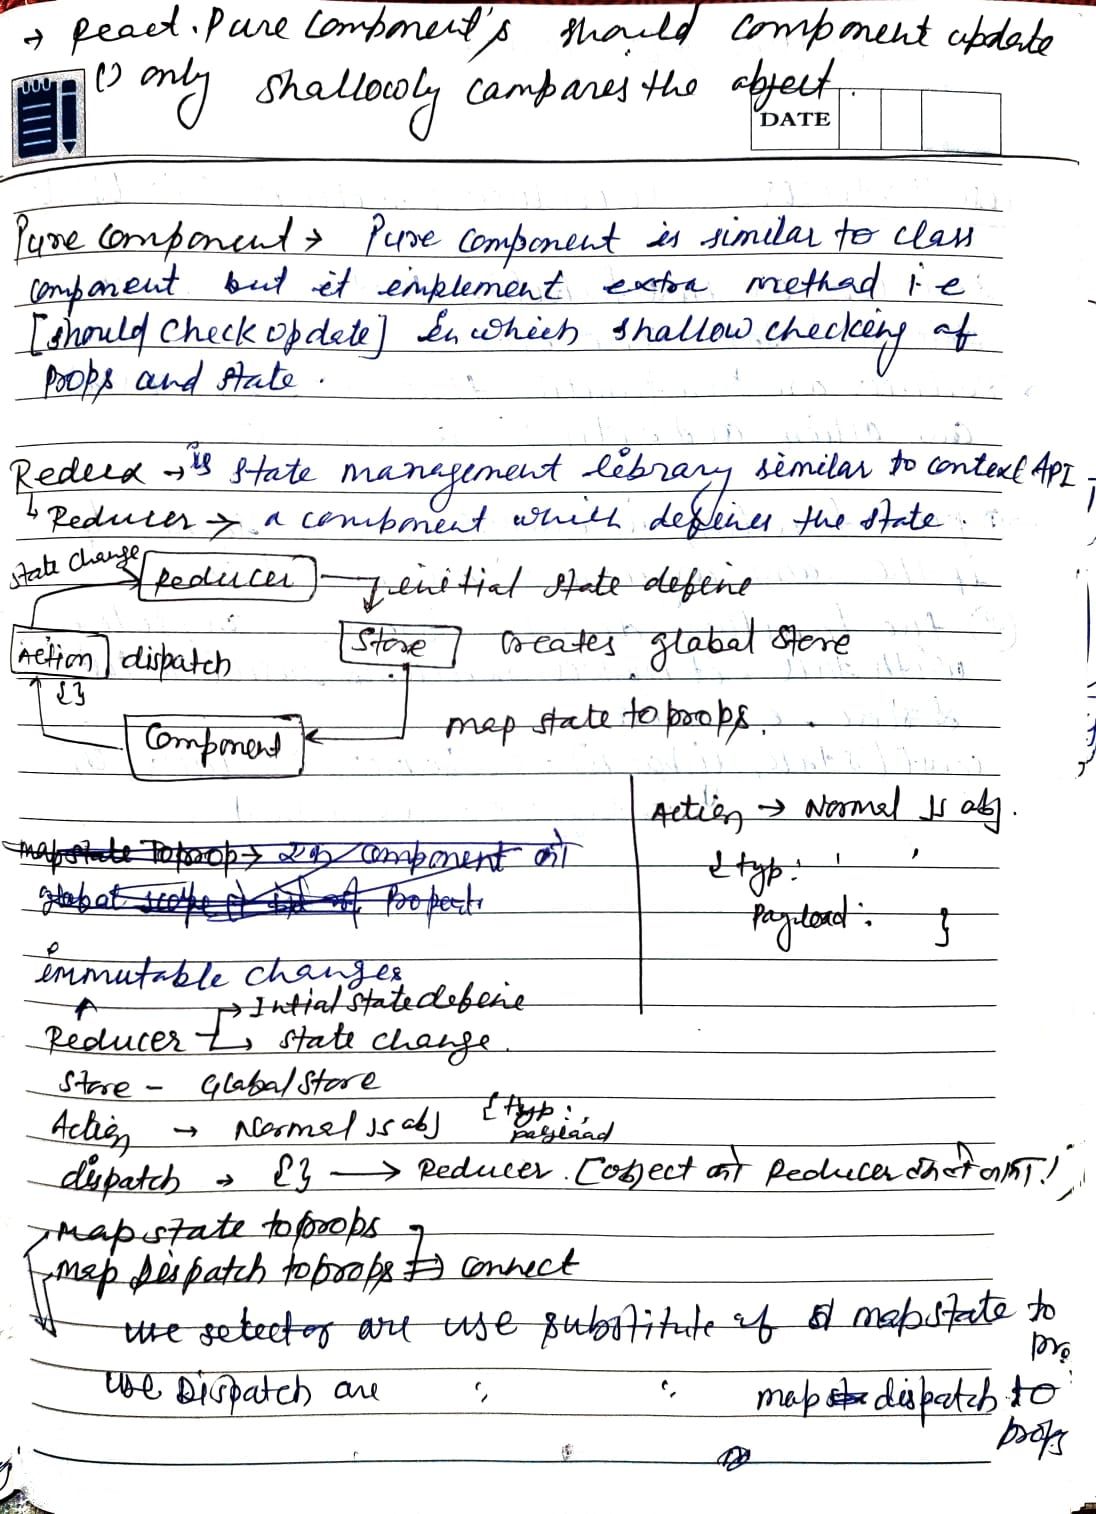 → React. Pure Component's should component update
() only shallowly campares the object.
DATE
Pure Component → Pure Component is similar to class
component but it implement extra method i.e
[should Check Update] in which shallow checking of
props and state.
Redux → is state management library similar to context API
↳ Reducer → a component which defines the state.
state change
Reducer → initial state define
Action dispatch
Store creates global Store
{}
Component
map state to props.
Action → Normal Js obj.
{ typ: ' '
payload: }
map state To prop → component
global scope
immutable changes
→ Intial state define
Reducer ↳ state change.
Store - Global Store
Action → Normal Js obj { typ: ,
payload
dispatch → {} → Reducer. [object को Reducer
map state to props
map Dispatch to props ⇒ connect
use selector are use substitute of mapstate to
pro
use Dispatch are " " map dispatch to
props